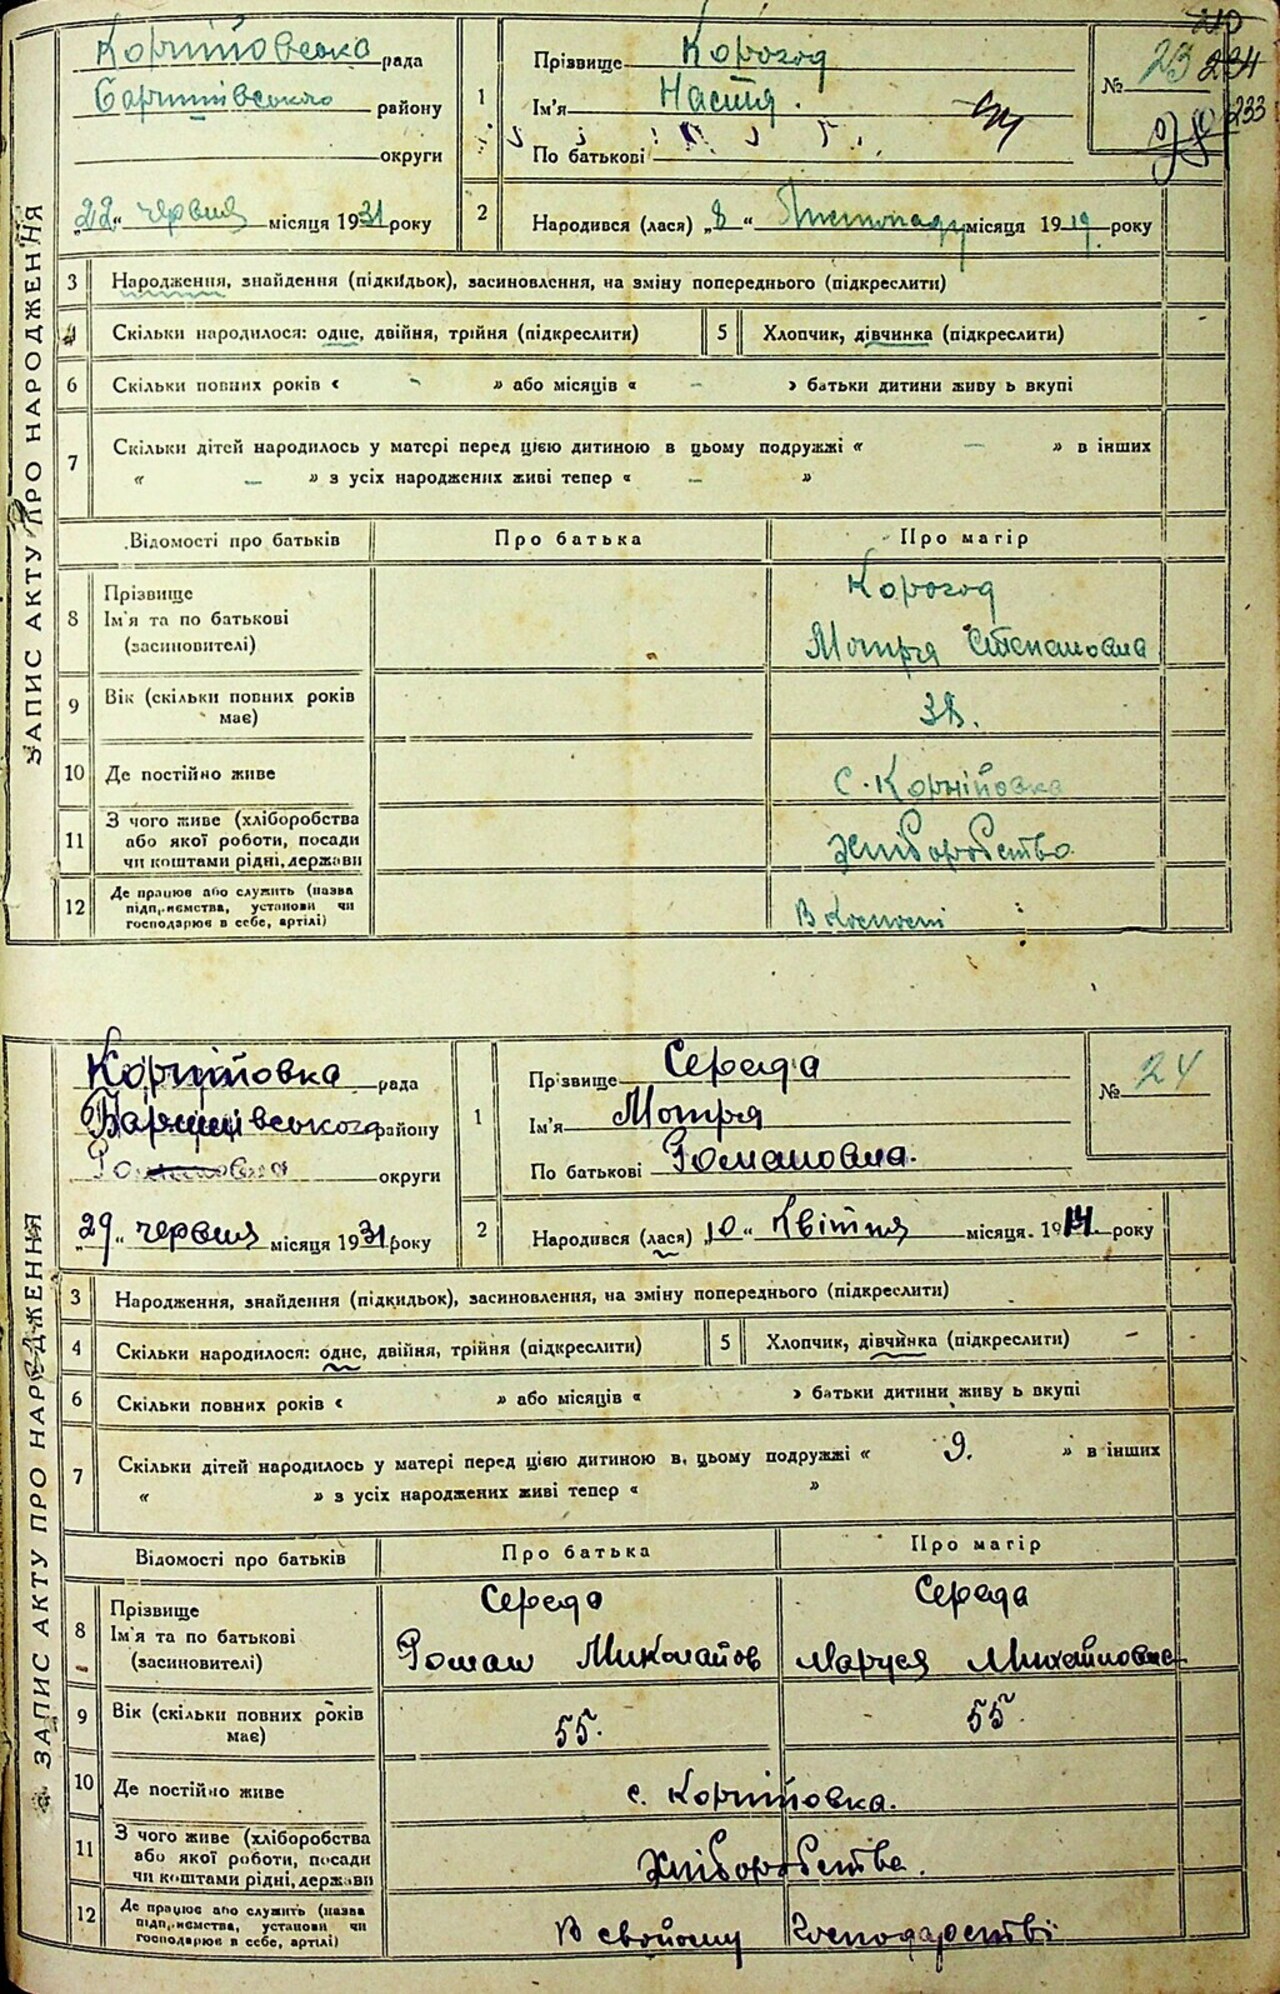 210
234
233
ЗАПИС АКТУ ПРО НАРОДЖЕННЯ
Корнійовська рада
Баришівського району
округи
„22“ червня місяця 1931 року
1
Прізвище Корогод
Ім'я Настя.
По батькові
№ 23
2
Народився (лася) „8“ Листопаду місяця 1919 року
3 Народження, знайдення (підкидьок), засиновлення, на зміну попереднього (підкреслити)
4 Скільки народилося: одне, двійня, трійня (підкреслити) 5 Хлопчик, дівчинка (підкреслити)
6 Скільки повних років « - » або місяців « - » батьки дитини живу ь вкупі
7 Скільки дітей народилось у матері перед цією дитиною в цьому подружжі « — » в інших
« — » з усіх народжених живі тепер « - »
Відомості про батьків Про батька Про матір
8 Прізвище
Ім'я та по батькові
(засиновителі)
Корогод
Мотря Степановна
9 Вік (скільки повних років
має)
38.
10 Де постійно живе с. Корнійовка
11 З чого живе (хліборобства
або якої роботи, посади
чи коштами рідні, держави
Хліборобство
12 Де працює або служить (назва
підприємства, установи чи
господарює в себе, артілі)
ЗАПИС АКТУ ПРО НАРОДЖЕННЯ
Корнійовка рада
Баришівського району
округи
„29“ червня місяця 1931 року
1
Прізвище Середа
Ім'я Мотря
По батькові Романовна.
№ 24
2
Народився (лася) „10“ Квітня місяця 1914 року
3 Народження, знайдення (підкидьок), засиновлення, на зміну попереднього (підкреслити)
4 Скільки народилося: одне, двійня, трійня (підкреслити) 5 Хлопчик, дівчинка (підкреслити)
6 Скільки повних років « » або місяців « » батьки дитини живу ь вкупі
7 Скільки дітей народилось у матері перед цією дитиною в цьому подружжі « 9. » в інших
« » з усіх народжених живі тепер « »
Відомості про батьків Про батька Про матір
8 Прізвище
Ім'я та по батькові
(засиновителі)
Середа Середа
Роман Миколайов Маруся Михайловна
9 Вік (скільки повних років
має)
55. 55.
10 Де постійно живе с. Корнійовка.
11 З чого живе (хліборобства
або якої роботи, посади
чи коштами рідні, держави
Хліборобства.
12 Де працює або служить (назва
підприємства, установи чи
господарює в себе, артілі)
В свойому Господарстві